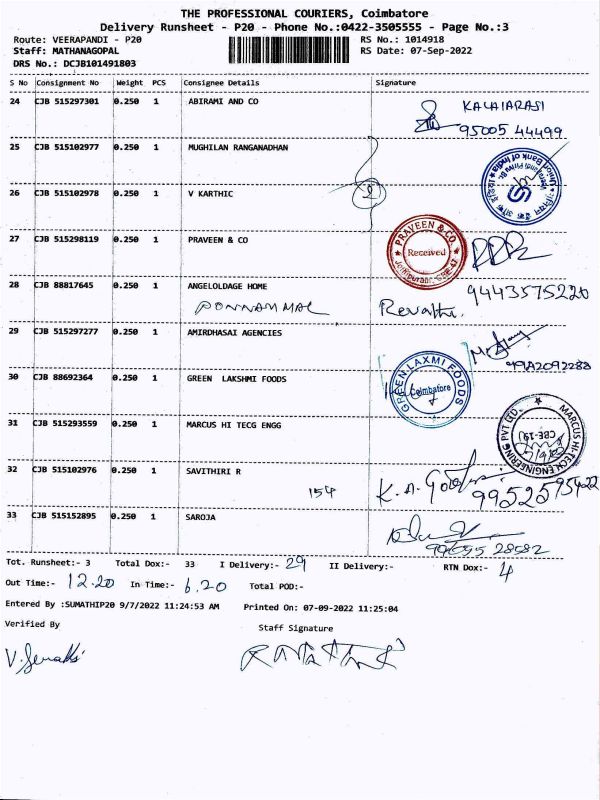 THE PROFESSIONAL COURIERS, Coimbatore
Delivery Runsheet - P20 - Phone No.:0422-3505555 - Page No.:3
Route: VEERAPANDI - P20 RS No.: 1014918
Staff: MATHANAGOPAL RS Date: 07-Sep-2022
DRS No.: DCJB101491803
S No Consignment No Weight PCS Consignee Details Signature
24 CJB 515297301 0.250 1 ABIRAMI AND CO KALAIARASI
95005 44499
25 CJB 515102977 0.250 1 MUGHILAN RANGANADHAN
Union Bank of India
26 CJB 515102978 0.250 1 V KARTHIC
27 CJB 515298119 0.250 1 PRAVEEN & CO
PRAVEEN & CO.
Received
28 CJB 88817645 0.250 1 ANGELOLDAGE HOME 9443575220
PONNAMMAL Revathi.
29 CJB 515297277 0.250 1 AMIRDHASAI AGENCIES
30 CJB 88692364 0.250 1 GREEN LAKSHMI FOODS
GREEN LAXMI FOODS
Coimbatore
31 CJB 515293559 0.250 1 MARCUS HI TECG ENGG
MARCUS HI-TECH ENGINEERING PVT LTD.
CBE-19
32 CJB 515102976 0.250 1 SAVITHIRI R
154 K. A.
33 CJB 515152895 0.250 1 SAROJA
Tot. Runsheet:- 3 Total Dox:- 33 I Delivery:- 29 II Delivery:- RTN Dox:- 4
Out Time:- 12.20 In Time:- 6.20 Total POD:-
Entered By :SUMATHIP20 9/7/2022 11:24:53 AM Printed On: 07-09-2022 11:25:04
Verified By Staff Signature